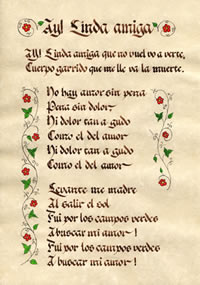 Ay! Linda amiga
Ay! Linda amiga que no vuelvo a verte,
Cuerpo garrido que me lleva la muerte.
No hay amor sin pena
Pena sin dolor
Ni dolor tan agudo
Como el del amor
Ni dolor tan agudo
Como el del amor
Levante me madre
Al salir el sol
Fui por los campos verdes
A buscar mi amor!
Fui por los campos verdes
A buscar mi amor!